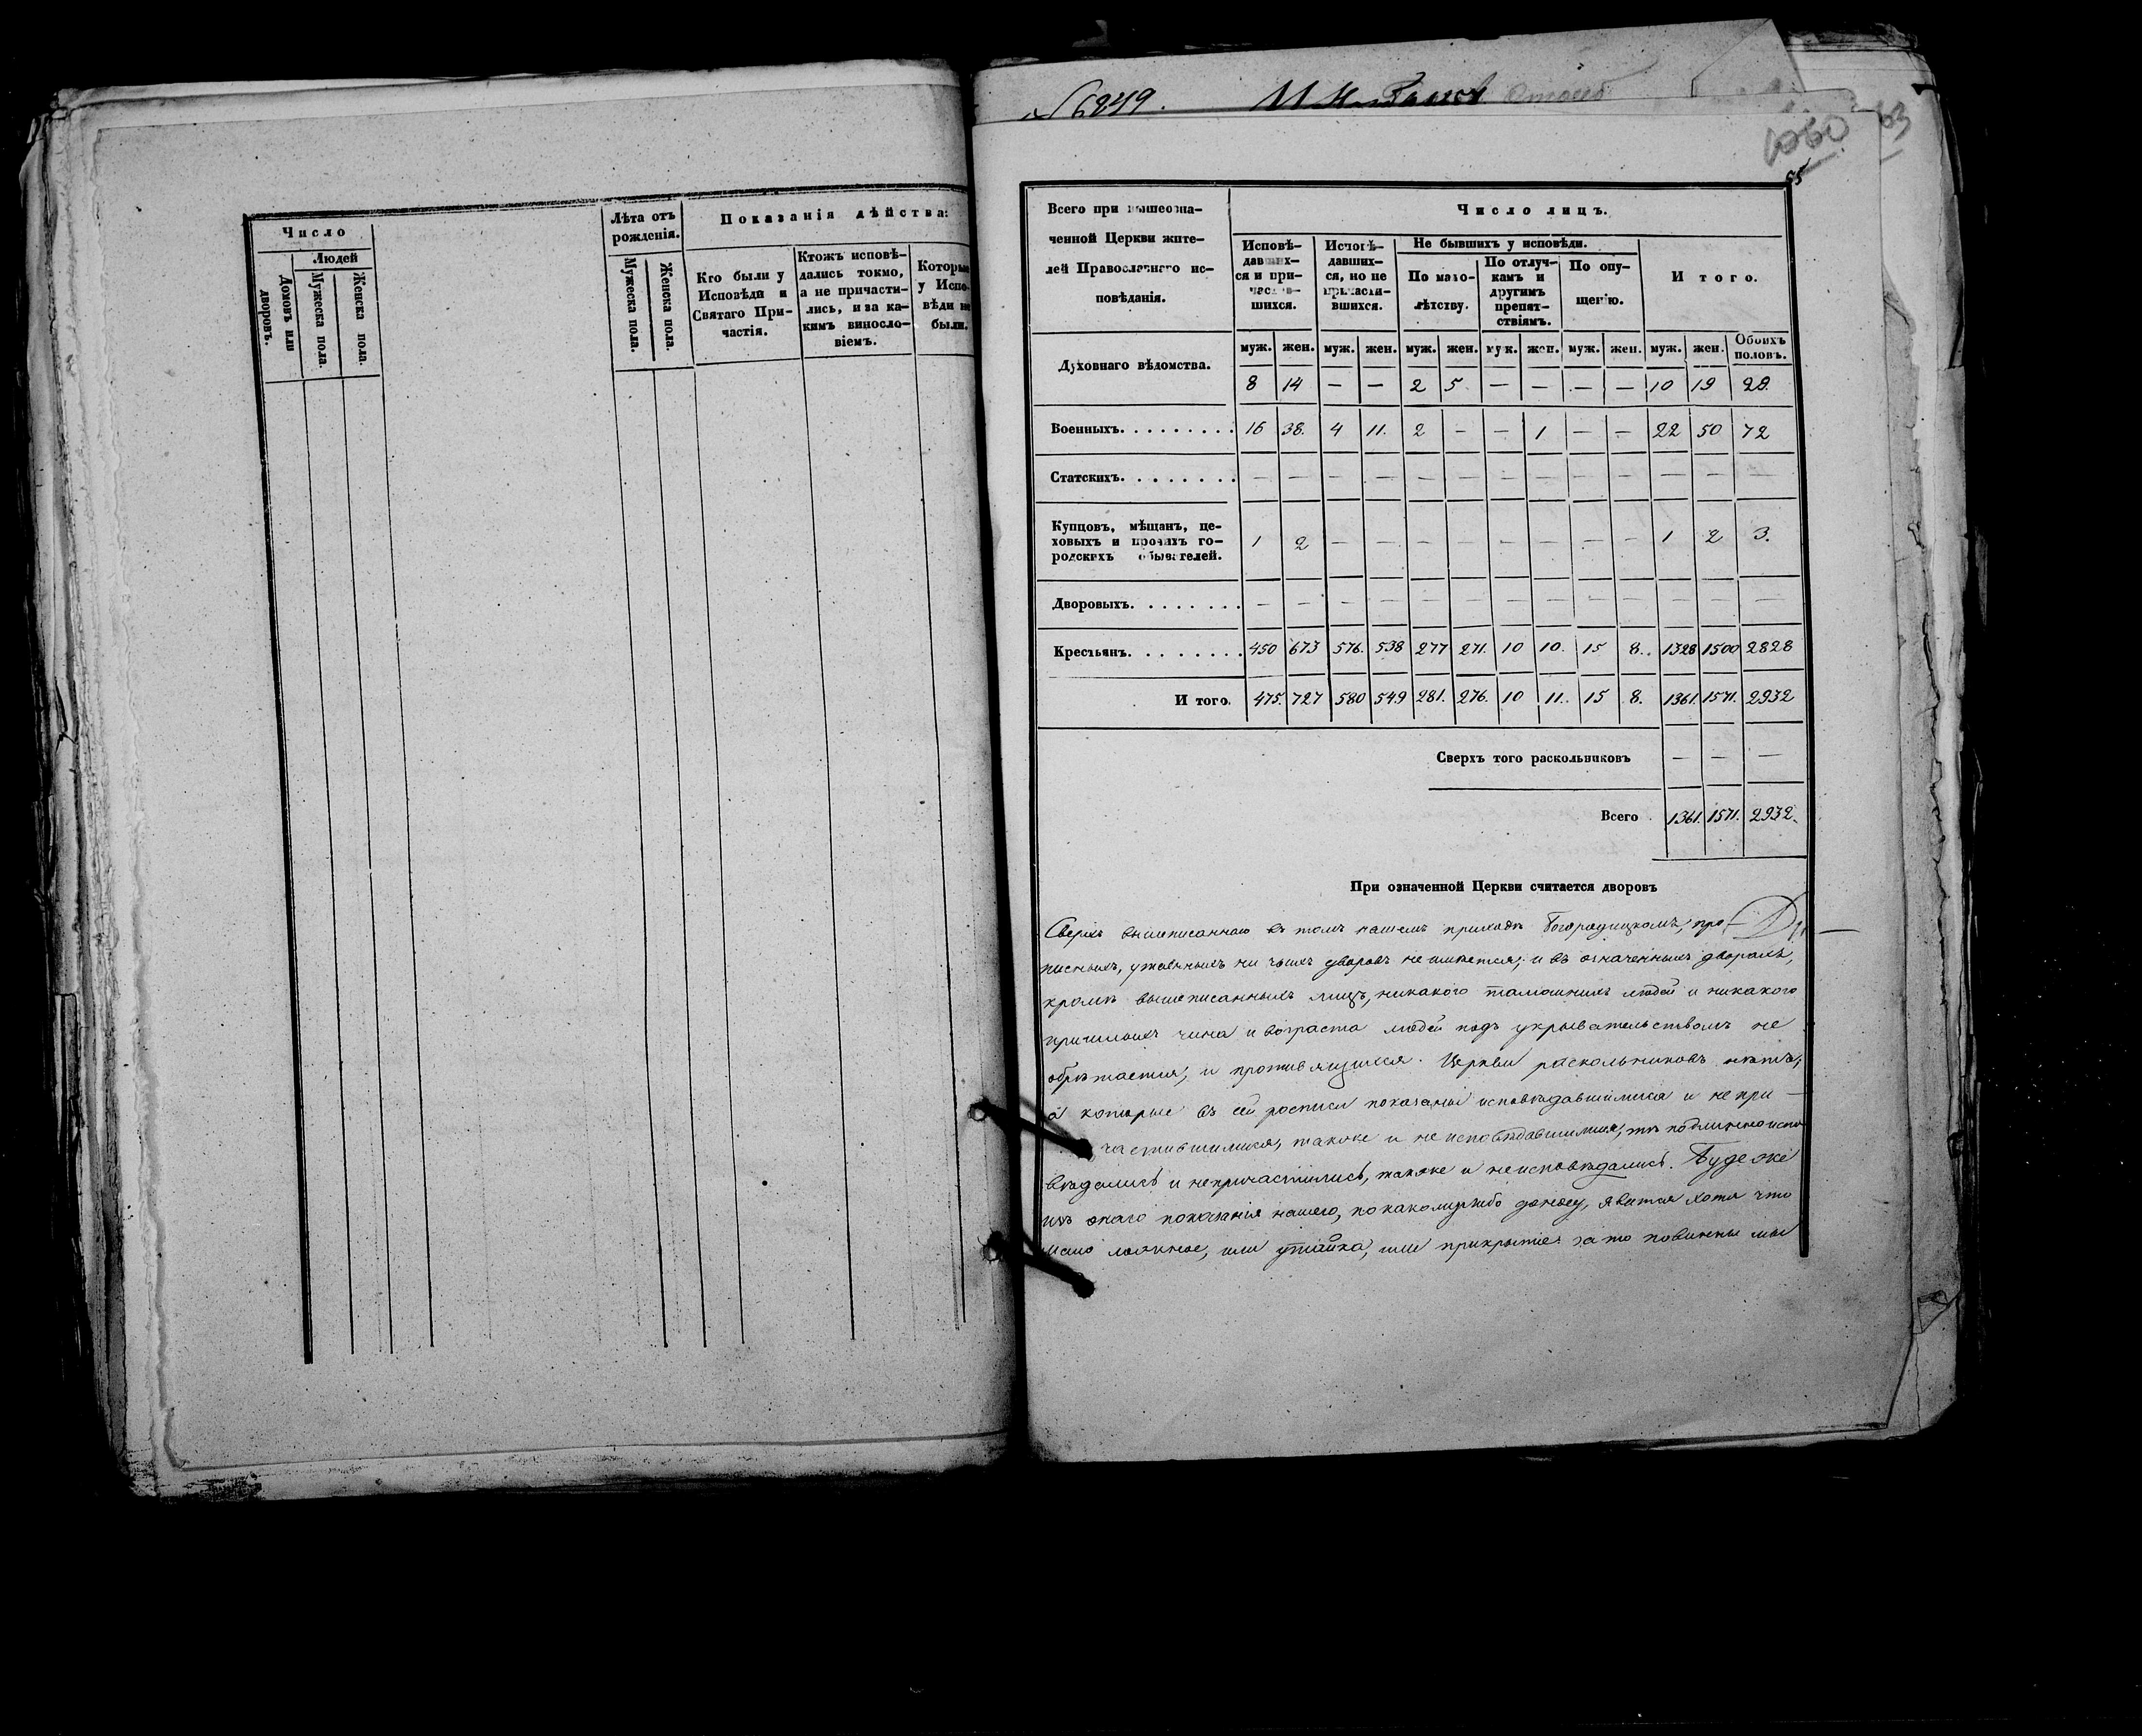 Число
Людей
Домовъ или дворовъ.
Мужеска пола.
Женска пола.
Лѣта отъ рожденія.
Мужеска пола.
Женска пола.
Показанія дѣйства:
Кто были у Исповѣди и Святаго Причастія.
Ктожъ исповѣдались токмо, а не причастились, и за какимъ винословіемъ.
Которые у Исповѣди не были.
6849.
1060
63
55
Всего при вышеозна-
ченной Церкви жите-
лей Православнаго ис-
повѣданія.
Число лицъ.
Исповѣ-
давших-
ся и при-
частив-
шихся.
Исповѣ-
давших-
ся, но не
причасти-
вшихся.
Не бывшихъ у исповѣди.
По мало-
лѣтству.
По отлуч-
камъ и
другимъ
препят-
ствіямъ.
По опу-
щенію.
И того.
муж. жен. муж. жен. муж. жен. муж. жен. муж. жен. муж. жен. Обоихъ половъ.
Духовнаго вѣдомства. 8 14 — — 2 5 — — — — 10 19 29.
Военныхъ. 16 38. 4 11. 2 — — 1 — — 22 50 72
Статскихъ. — — — — — — — — — — — — —
Купцовъ, мѣщанъ, це-
ховыхъ и прочихъ го-
родскихъ обывателей. 1 2 — — — — — — — — 1 2 3.
Дворовыхъ. — — — — — — — — — — — — —
Крестьянъ. 450 673 576. 538 277 271. 10 10. 15 8. 1328 1500 2828
И того. 475. 727 580 549 281. 276. 10 11. 15 8. 1361. 1571. 2932
Сверхъ того раскольниковъ — — —
Всего 1361. 1571. 2932.
При означенной Церкви считается дворовъ
Сверхъ вышеписаннаго въ томъ нашемъ приходѣ Богородицкомъ, про-
писныхъ, утаенныхъ ни чьихъ дворовъ не имѣется; и въ означенныхъ дворахъ,
кромѣ вышеписанныхъ лицъ, никакого тамошнихъ людей и никакого
пришлыхъ чина и возраста людей подъ укрывательствомъ не
обрѣтается; и противящихся Церкви раскольниковъ нѣтъ;
а которые въ сей росписи показаны исповѣдавшимися и непри-
частившимися, также и не исповѣдавшимися, тѣ подлинно испо
вѣдались и непричастились, также и неисповѣдались. Буде же
изъ онаго показанія нашего, по какому либо доносу, явится хотя что
мало ложное, или утайка, или прикрытіе: за то повинны мы